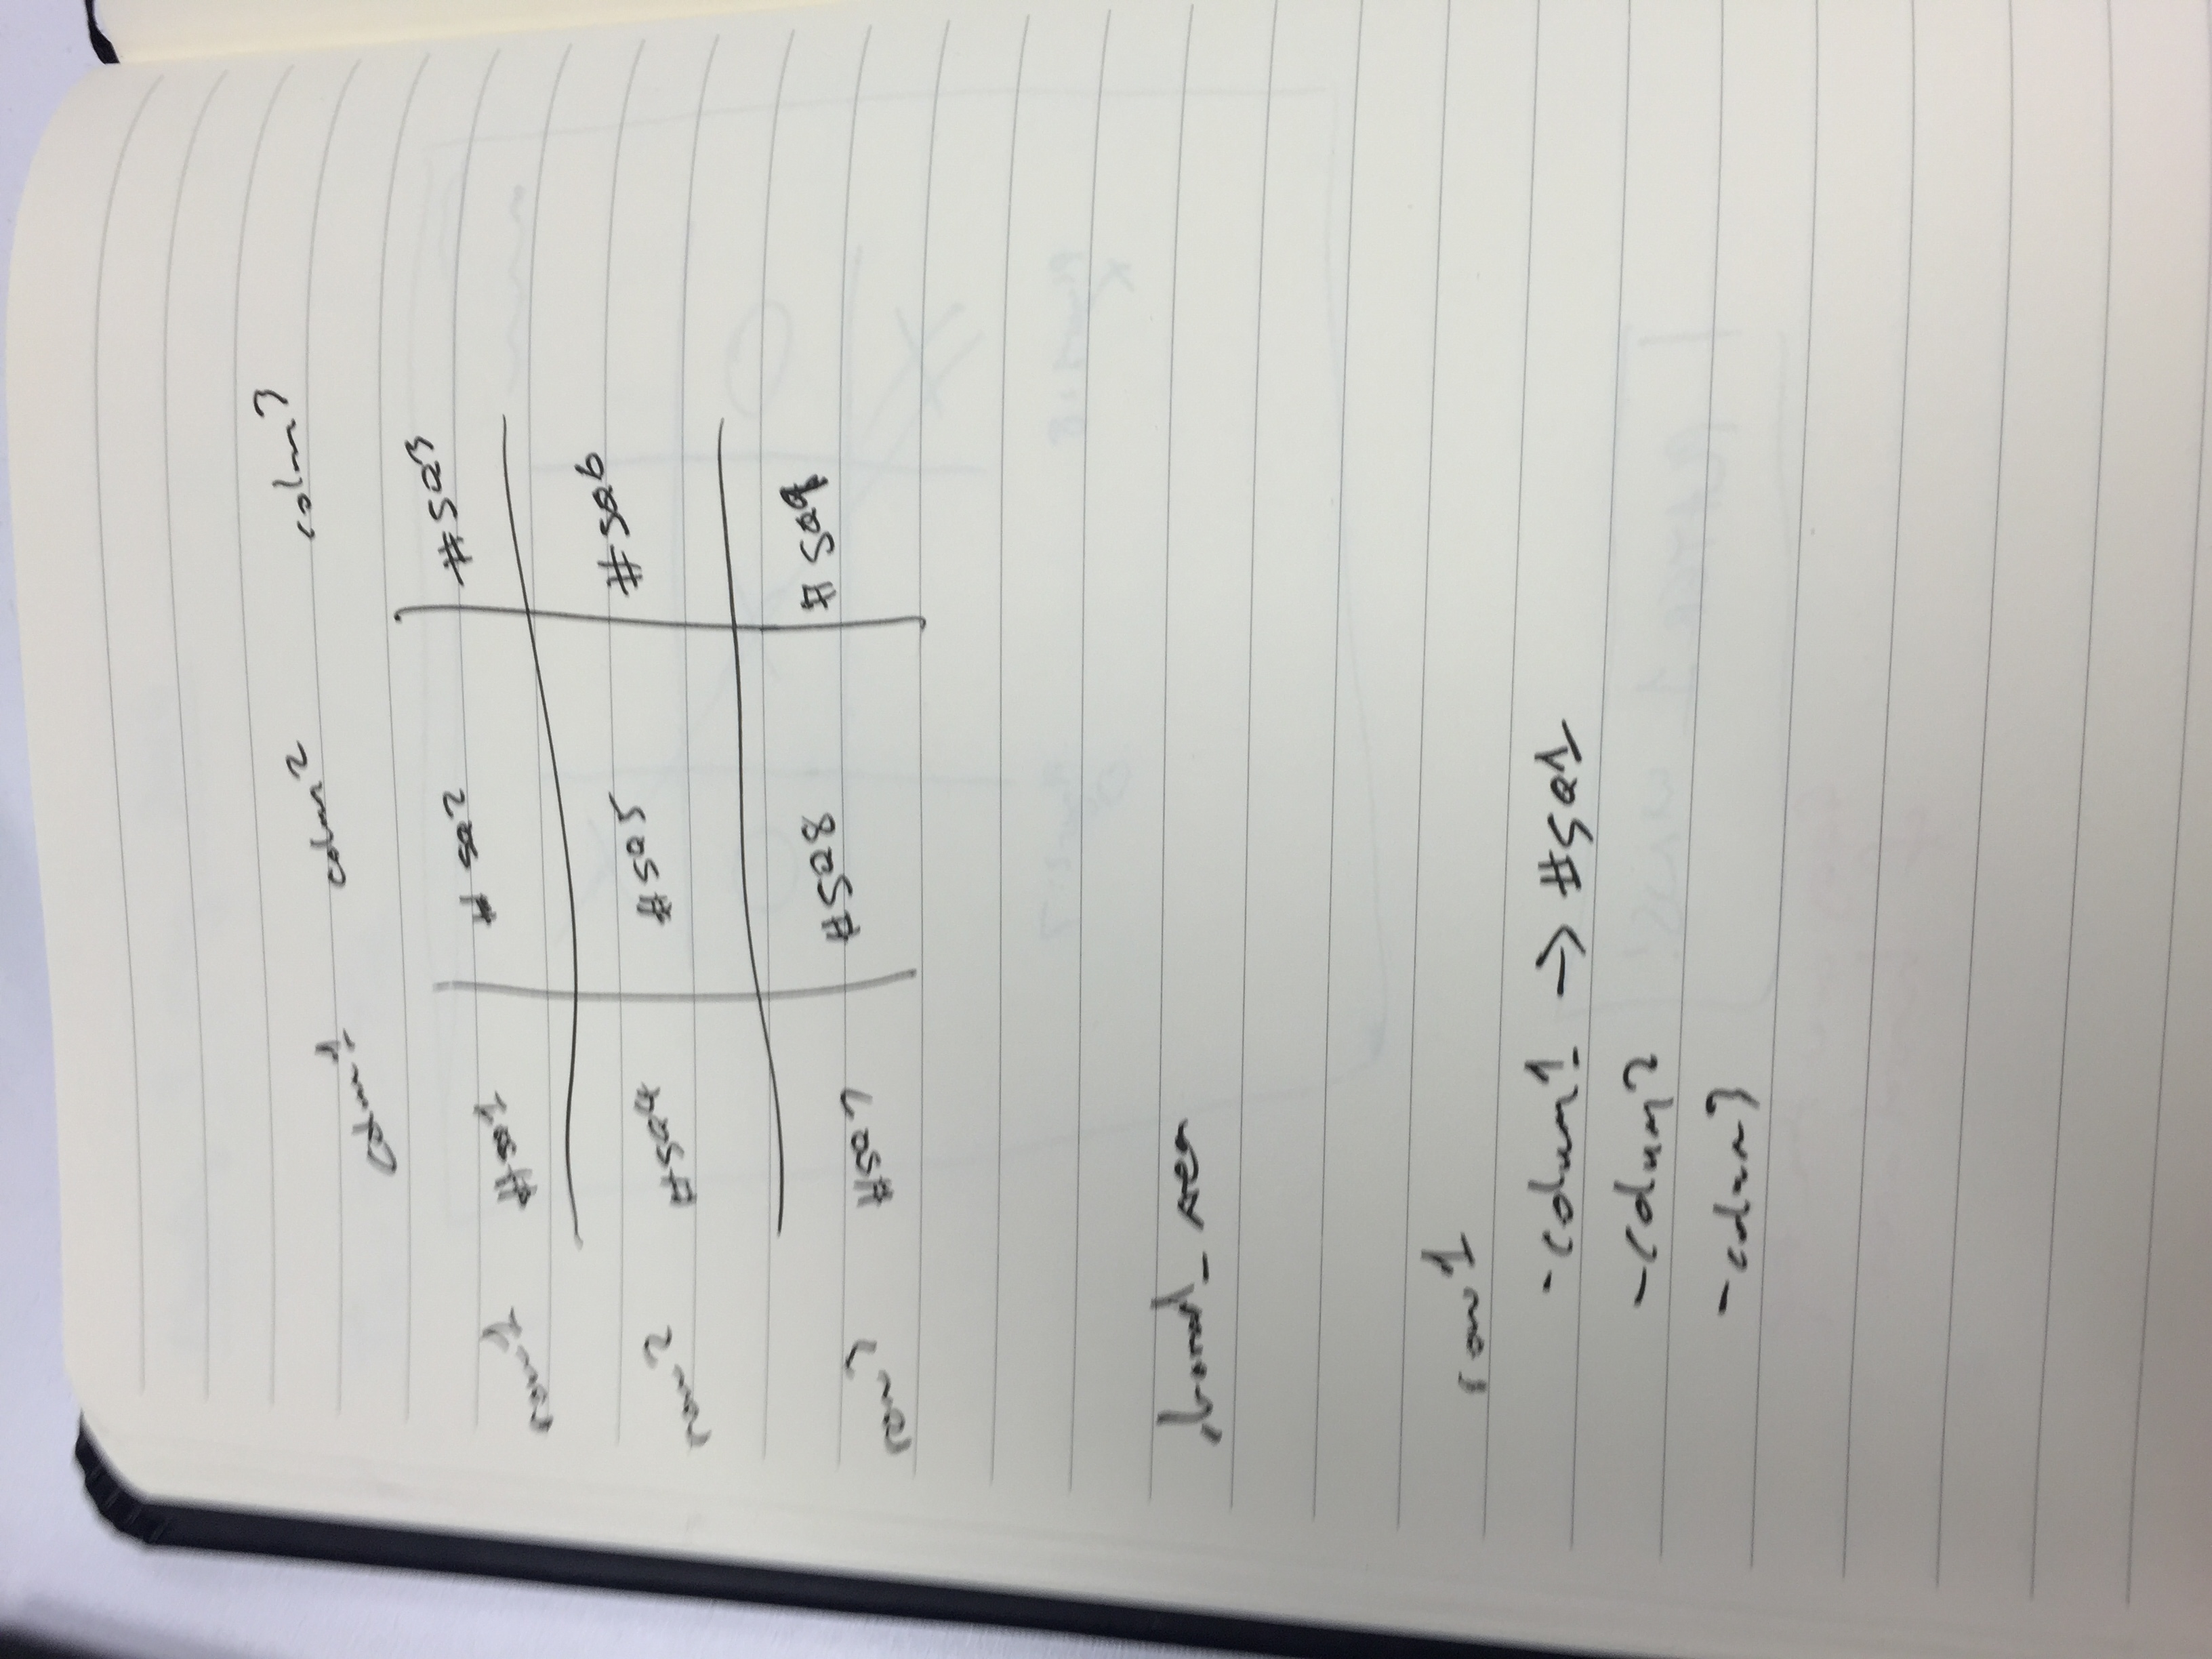 colum1 colum2 colum3
row1 #sq1 #sq2 #sq3
row2 #sq4 #sq5 #sq6
row3 #sq7 #sq8 #sq9
.board_area
row1
-colum1 → #sq1
-colum2
-colum3
PLAYER 1 WINS!